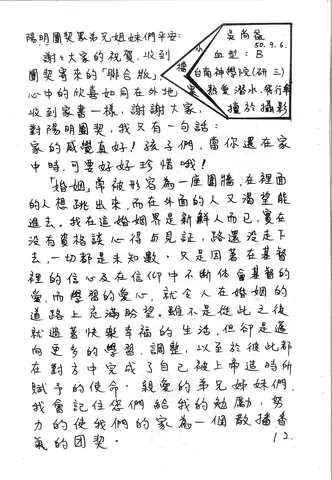 陽明團契眾弟兄姐妹們平安:
謝謝大家的祝賀,收到
團契寄來的「聯合版」,
心中的欣喜如同在外地
收到家書一樣,謝謝大家,
對陽明團契,我只有一句話:
家的感覺真好!孩子們,當你還在家
中時,可要好好珍惜哦!
「婚姻」常被形容為一座圍牆,在裡面
的人想跳出來,而在外面的人又渴望能
進去。我在這婚姻界是新鮮人而已,實在
沒有資格談心得与見証,路還沒走下
去,一切都是未知數。只是因著在基督
裡的信心及在信仰中不斷体會基督的
愛,而學習的愛心,就令人在婚姻的
道路上充滿盼望。雖不是從此之後
就過著快樂幸福的生活,但卻是邁
向更多的學習、調整,以至於彼此都
在對方中完成了自己被上帝造時所
賦予的使命。親愛的弟兄姊妹們,
我會記住您們給我的勉勵,努
力的使我們的家為一個散播香
氣的团契。
吳尚益
50.9.6.
血型:B
台南神學院(研三)
熱愛潛水、飛行
擅於攝影
12.